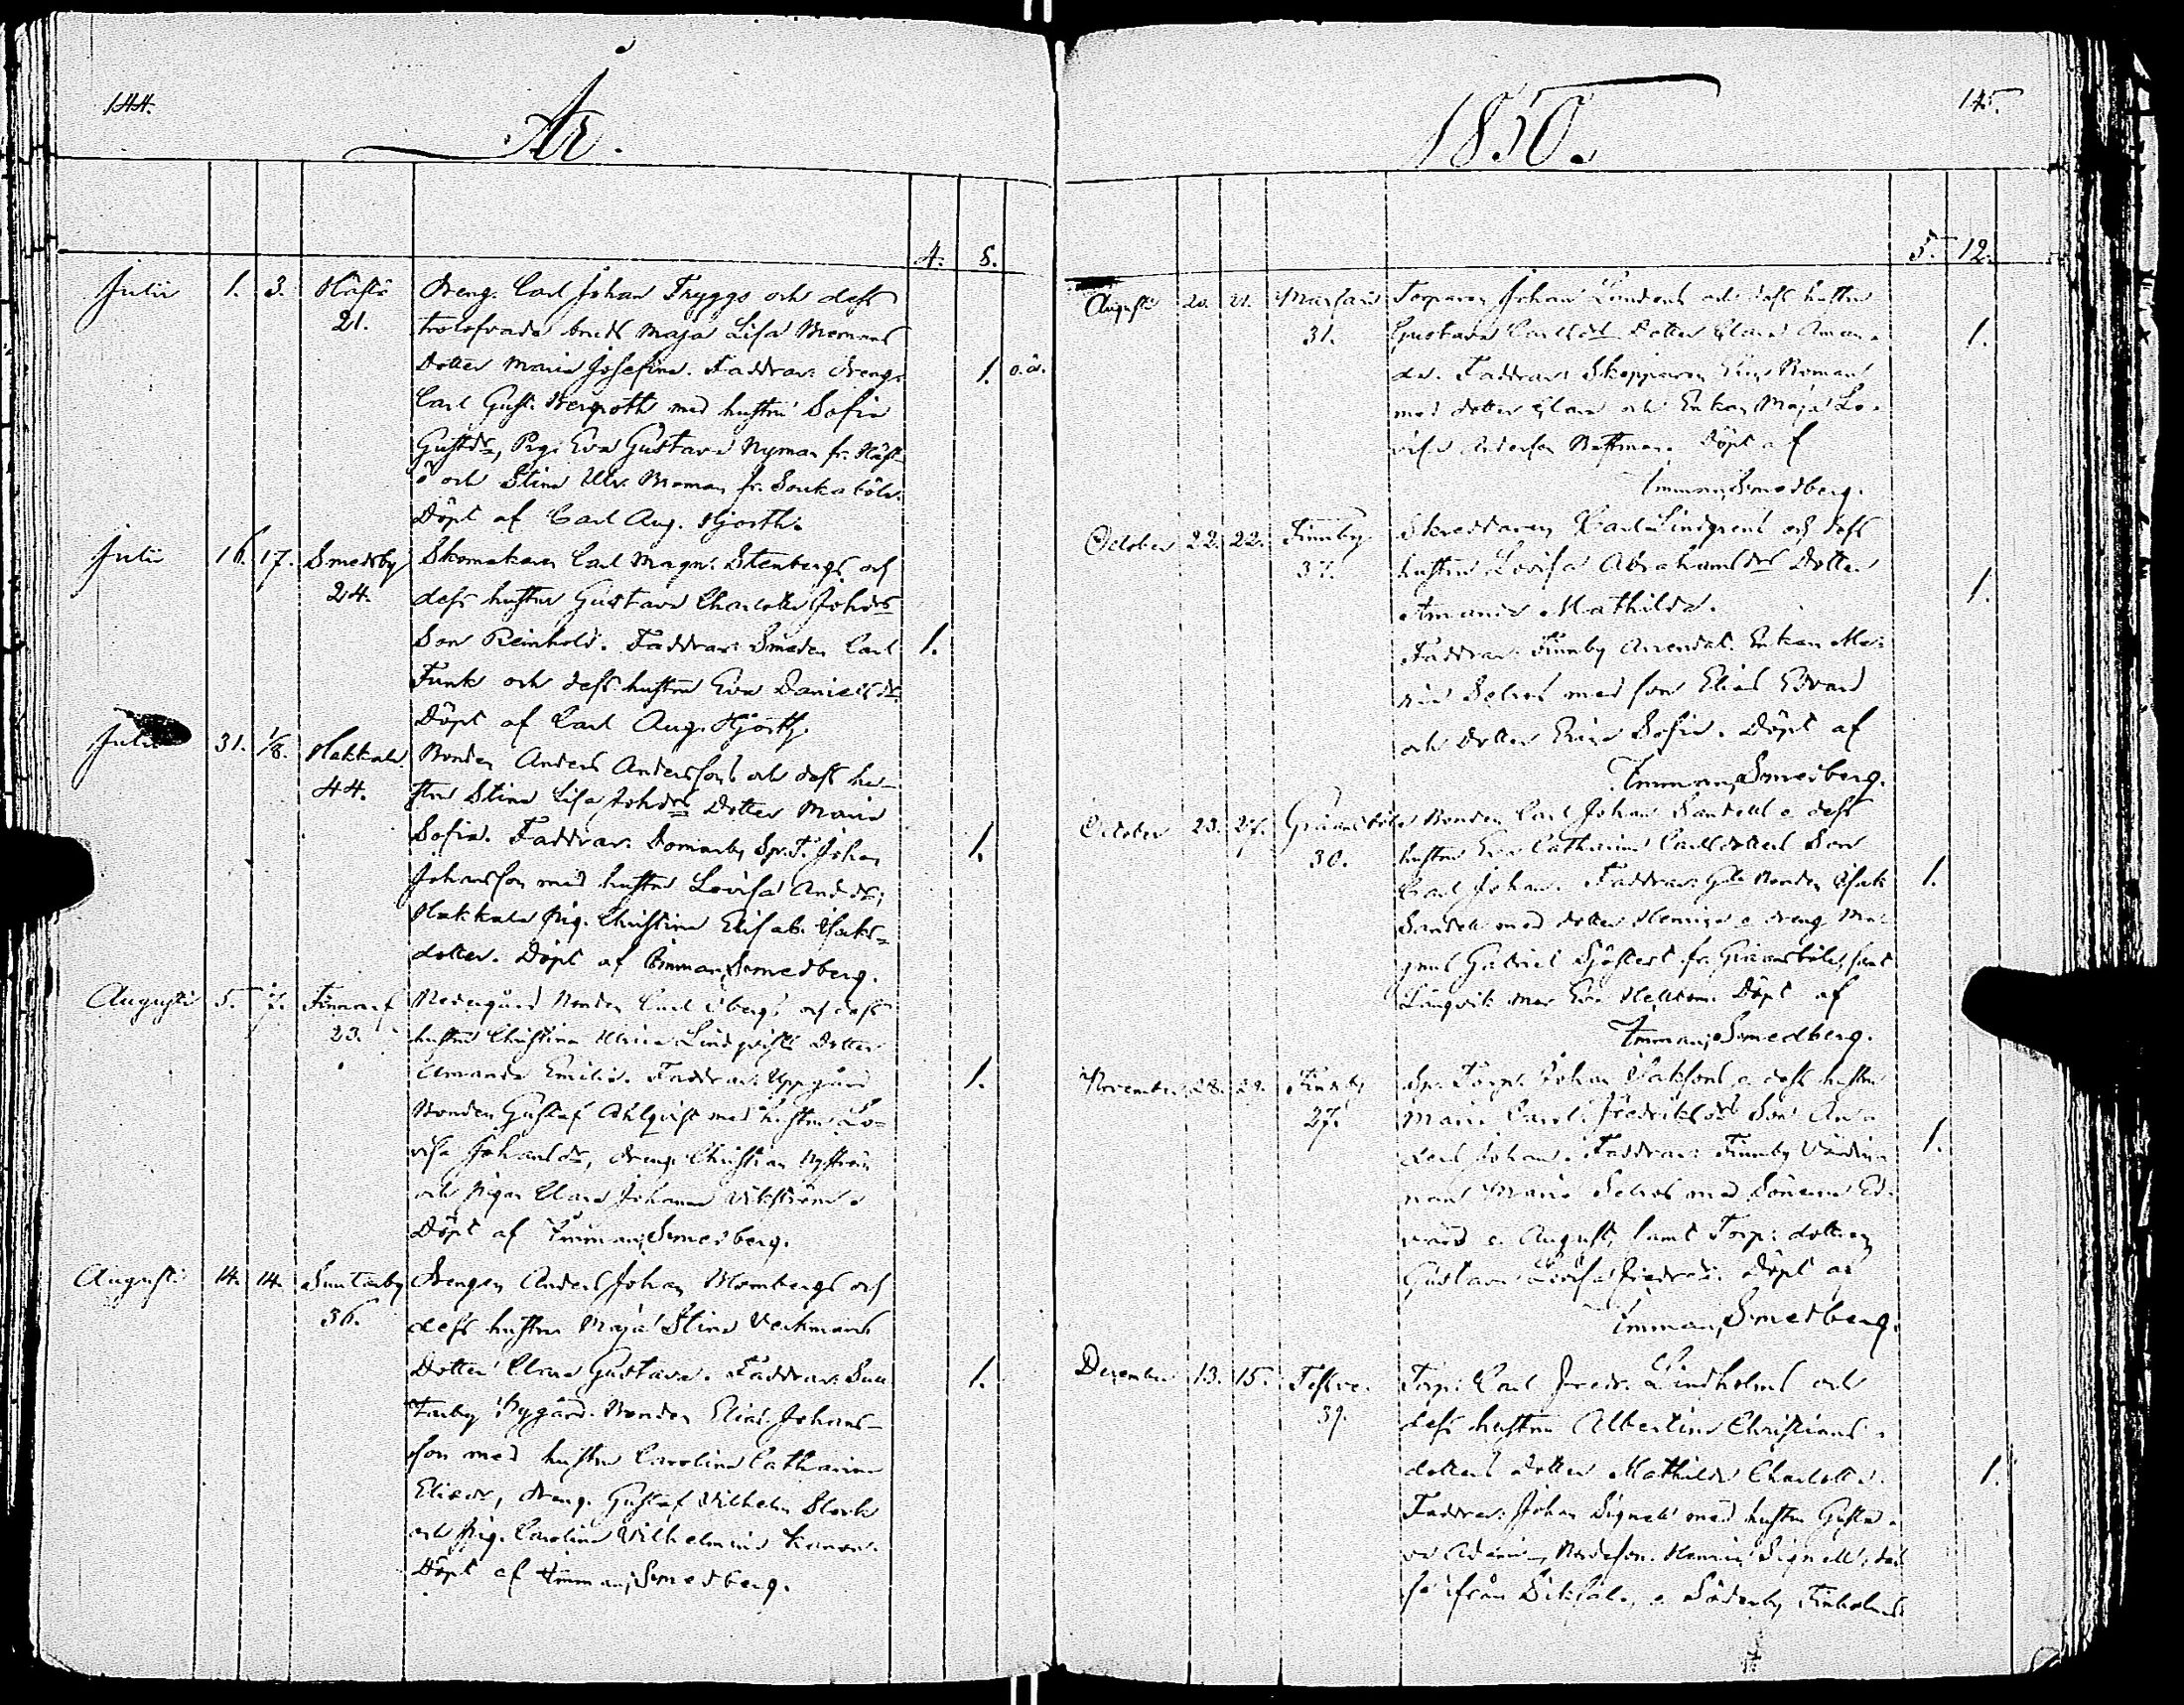 144.
År
4. 5.
Julii 1. 3. Hästö Dreng. Carl Johan Tryggs och dess
21. trolofvade bruds Maja Lisa Bromans
Dotter Maria Josefina. Faddrar: dreng. 1. o.ä.
Carl Gust. Bergroth med hustru Sofia
Gustdr, Pig. Eva Gustava Nyman fr. Häst-
ö och Stina Ulr. Broman fr.
Döpt af Carl Aug. Hjorth.
Julii 16. 17. Smedsby Skomakaren Carl Magn. Stenbergs och
24. dess hustrus Gustava Charlotta Johdrs
Son Reinhold. Faddrar: Smeden Carl 1.
Funk och dess hustru Eva Danielsdr.
Döpt af Carl Aug. Hjorth.
Julii 31. 1/8. Hakkala. Bonden Anders Anderssons och dess hu-
44. strus Stina Lisa Johdrs Dotter Maria
Sofia. Faddrar: Domarby Sp.T. Johan 1.
Johansson med hustru Lovisa Anddr;
Hakkala pig. Christina Elisab. Isaks-
dotter. Döpt af Imman. Smedberg.
Augusti 5. 7. Finnarf Nedergård Bonden Carl Öbergs och dess
23. hustrus Christina Maria Lindqvists Dotter
Amanda Emilia. Faddrar: Uppgård 1.
Bonden Gustaf Ahlqvist med hustru Lo-
visa Johansdr, dreng. Christian Nyström
och pigan Clara Johanna Vikström.
Döpt af Imman. Smedberg.
Augusti 14. 14. Suutarby Drengen Anders Johan Blombergs och
36. dess hustrus Maja Stina Veckmans
Dotter Clara Gustava. Faddrar: Suu- 1.
tarby Nygård Bonden Elias Johans-
son med hustru Carolina Catharina
Eliædr, dreng. Gustaf Vilhelm Blork
och pig. Carolina Vilhelmina
Döpt af Imman. Smedberg.
1850.
145.
5. 12.
Augusti 20. 21. Torparen Johan Lundens och dess hustrus
31. Gustava Carlsdrs Dotter Clara Aman- 1.
da. Faddrar: Skepparen Roman
med dotter Clara och Enkan Maja Lo-
visa Döpt af
Imman. Smedberg.
October 22. 22. Finnby Skreddaren Carl Lindgrens och dess
37. hustrus Lovisa Abrahamsdrs Dotter
Amanda Mathilda. 1.
Faddrar: Finnby Arrendat. Enkan Ma-
ria Selros med son Elias Edvard
och dotter Sofia. Döpt af
Imman. Smedberg.
October 23. 27. Bonden Carl Johan Sandells o dess
30. hustrus Eva Catharina Carlsdotters Son
Carl Johan. Faddrar: Bonden Isak 1.
Sandell med dotter Henrica o dreng Ma-
gnus Gabriel Sjöstert fr. Gräansböle, samt
Långvik Eva Döpt af
Imman. Smedberg.
November 28. 29. Finnby Sp. Torp. Johan Isakssons o. dess hustrus
27. Maria Carol. Fredriksdrs Son An-
ders Johan. Faddrar: Finnby Värdin- 1.
nan Maria Selros med Sönerna Ed-
vard o. August, samt Torp: dottren
Gustava Lovisa Fredrdr. Döpt af
Imman. Smedberg.
December 13. 15. Torp: Carl Fredr. Lindholms och
39. dess hustrus Albertina Christians-
dotters Dotter Mathilda Charlotta. 1.
Faddrar: Johan Signell med hustru Gusta-
va Bondeson. Henric Signell,
ifrån o. Söderby